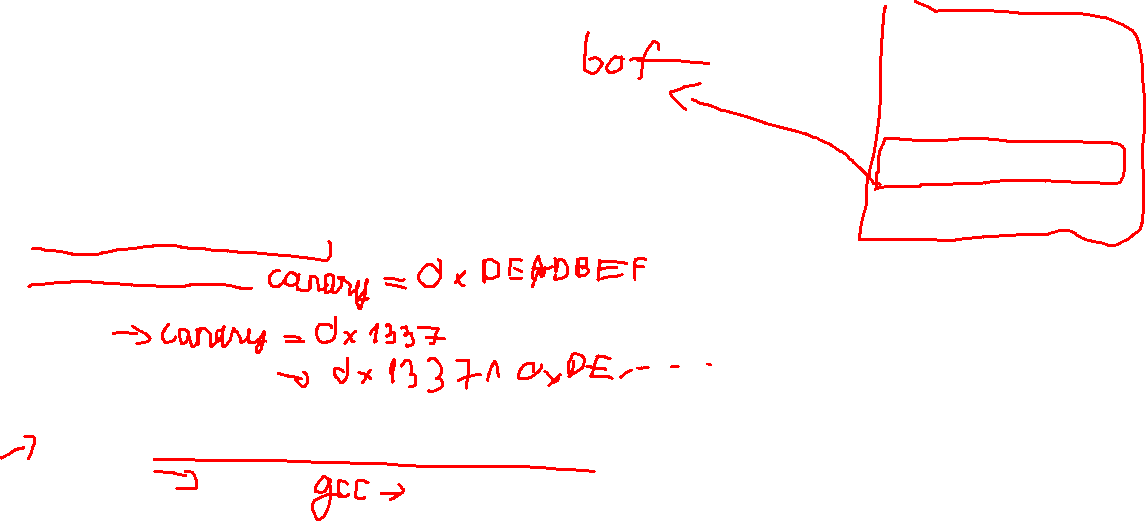 bof
canary = 0x DEADBEEF
→ canary = 0x1337
→ 0x1337 ^ 0xDE, - - - -
gcc →